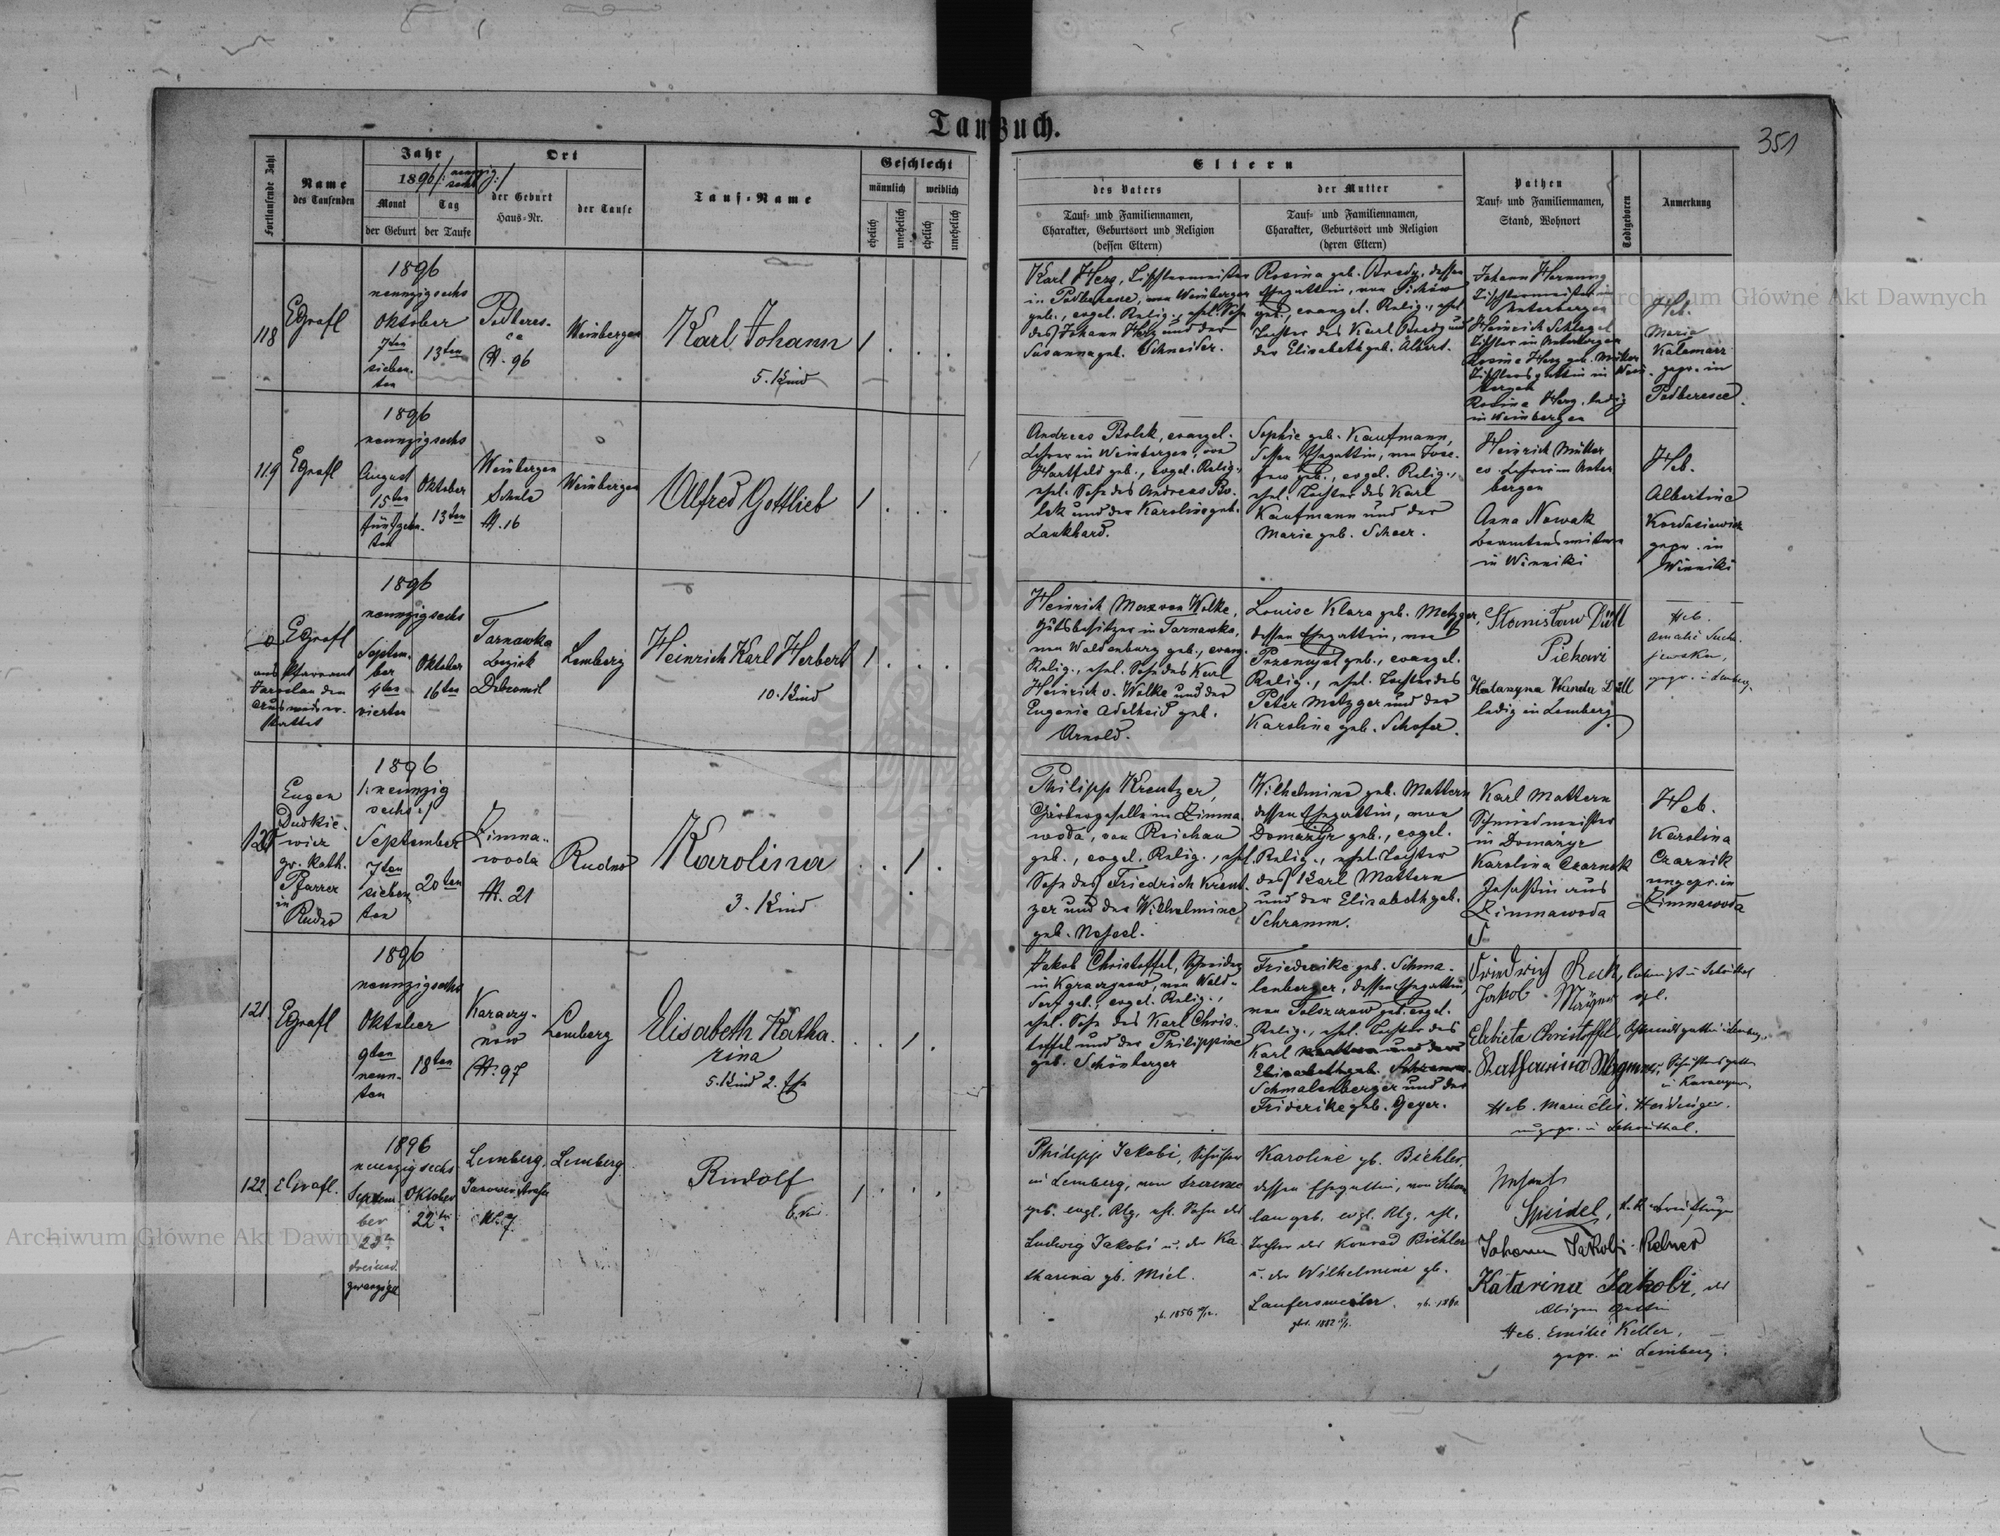 Taufbuch.
351
Fortlaufende Zahl
Name
des Taufenden
Jahr
1896 /: neunzig
sechs :/
Monat
Tag
der Geburt
der Taufe
Ort
der Geburt
Haus-Nr.
der Taufe
Tauf-Name
Geschlecht
männlich
weiblich
ehelich
unehelich
ehelich
unehelich
Eltern
des Vaters
Tauf- und Familiennamen,
Charakter, Geburtsort und Religion
(dessen Eltern)
der Mutter
Tauf- und Familiennamen,
Charakter, Geburtsort und Religion
(deren Eltern)
Pathen
Tauf- und Familiennamen,
Stand, Wohnort
Todtgeboren
Anmerkung
118
EGrafl
1896
neunzigsechs
Oktober
7ten
sieben-
ten
13ten
Podberes-
ce
N. 96
Weinbergen
Karl Johann
5. Kind
1
Karl Herz, Tischlermeister
in Podberesce, von Weinbergen
geb., evgel. Relig., ehel. Sohn
des Johann Herz und der
Susanna geb. Schneider.
Rosina geb. Bredy, dessen
Ehegattin, von
geb., evangel. Relig., ehel.
Tochter des Karl Bredy und
der Elisabeth geb. Albert.
Johann Hornung
Tischlermeister in
Unterbergen
Heinrich Schlegel
Tischler in Unterbergen
Rosina Herz geb. Müller
Tischlersgattin in Wein-
bergen
Rosina Herz, ledig
in Weinbergen
Heb.
Maria
Kalamarz
gepr. in
Podberesce.
119
EGrafl
1896
neunzigsechs
August
15ten
fünfzehn-
ten
Oktober
13ten
Weinbergen
Schule
N. 16
Weinbergen
Alfred Gottlieb
1
Andreas Bolek, evangel.
Lehrer in Weinbergen, von
Hartfeld geb., evgel. Relig.,
ehel. Sohn des Andreas Bo-
lek und der Karoline geb.
Lankhard.
Sophie geb. Kaufmann,
dessen Ehegattin, von Jose-
fow geb., evgel. Relig.,
ehel. Tochter des Karl
Kaufmann und der
Marie geb. Scheer.
Heinrich Müller
ev. Lehrer in Unter-
bergen
Anna Nowak
Beamtenswitwe
in Winniki
Heb.
Albertine
Kordasiewicz
gepr. in
Winniki
EGrafl
Pfarramt
Jaroslau den
1896
neunzigsechs
Septem-
ber
4ten
vierten
Oktober
16ten
Tarnawka
Bezirk
Dobromil
Lemberg
Heinrich Karl Herbert
10. Kind
1
Heinrich Max von Wolke,
Gutsbesitzer in Tarnawka,
von Waldenburg geb., evang.
Relig., ehel. Sohn des Karl
Heinrich v. Wolke und der
Eugenie Adelheid geb.
Arnold.
Louise Klara geb. Metzger,
dessen Ehegattin, von
Przemysl geb., evangel.
Relig., ehel. Tochter des
Peter Metzger und der
Karoline geb. Schofer.
Stanisław Düll
Piekarz
Katarzyna Wanda Düll
ledig in Lemberg
Heb.
Amalie
gepr. in Lemberg.
120
Eugen
Dudkie-
wicz
gr. kath.
Pfarrer
in
Rudno
1896
/: neunzig
sechs :/
September
7ten
sieben
ten
20ten
Zimna-
woda
N. 21
Rudno
Karolina
3. Kind
1
Philipp Kreutzer,
Gärbergeselle in Zimna-
woda, von Reichau
geb., evgel. Relig., ehel.
Sohn des Friedrich Kreut-
zer und der Wilhelmine
geb.
Wilhelmine geb. Mattern
dessen Ehegattin, von
Domażyr geb., evgel.
Relig., ehel. Tochter
des Karl Mattern
und der Elisabeth geb.
Schramm.
Karl Mattern
Schmiedmeister
in Domażyr
Karolina Czarnek
Insassin aus
Zimnawoda
Heb.
Karolina
Czarnik
ungepr. in
Zimnawoda
121.
EGrafl.
1896
neunzigsechs
Oktober
9ten
neun-
ten
18ten
Karaczy-
now
N. 97
Lemberg
Elisabeth Katha-
rina
5. Kind 2. Ehe
1
Jakob Christoffel, Schneider
in Karaczynow, von Wald-
dorf geb., evgel. Relig.,
ehel. Sohn des Karl Chris-
toffel und der Philippine
geb. Schönberger
Friederike geb. Schma-
lenberger, dessen Ehegattin,
von Falezerow geb. evgel.
Relig., ehel. Tochter des
Karl Mattern und der
Elisabeth geb. Schramm.
Schmalenberger und der
Friderike geb. Geyer.
Friedrich Reck,
Jakob Mayer
Elzbieta Christoffel,
Katharina Wagner,
in Karaczynow.
Heb. Marie Elis. Heidinger.
ungepr. in Schönthal.
122.
EGrafl.
1896
neunzigsechs
Septem-
ber
23ten
dreiund-
zwanzigst
Oktober
22ten
Lemberg,
Janower Strasse
N. 7
Lemberg.
Rudolf
6. Kin.
1
Philipp Jakobi, Schuster
in Lemberg, von
geb. evgl. Rlg. ehl. Sohn des
Ludwig Jakobi u. der Ka-
tharina gb. Miel.
gb. 1856
Karoline gb. Biehler,
dessen Ehegattin, von
geb. evgl. Rlg. ehl.
Tochter des Konrad Biehler
u. der Wilhelmine gb.
Laufersweiler. gb. 1860
1882
Speidel,
Johann Jakobi Kelner
Katarina Jakobi, des
Obigen Gattin
Heb. Emilie Keller,
gepr. in Lemberg.
Archiwum Główne Akt Dawnych
Archiwum Główne Akt Dawnych